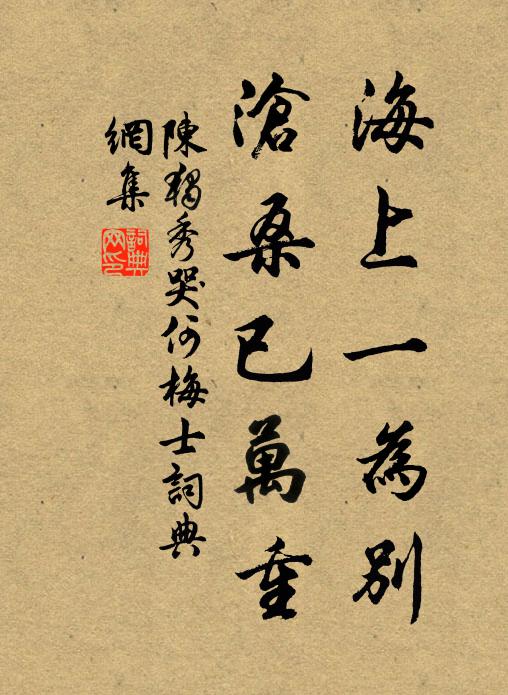 海上一為別
滄桑已萬重
陳獨秀哭何梅士詞典
網集
詞典
网印